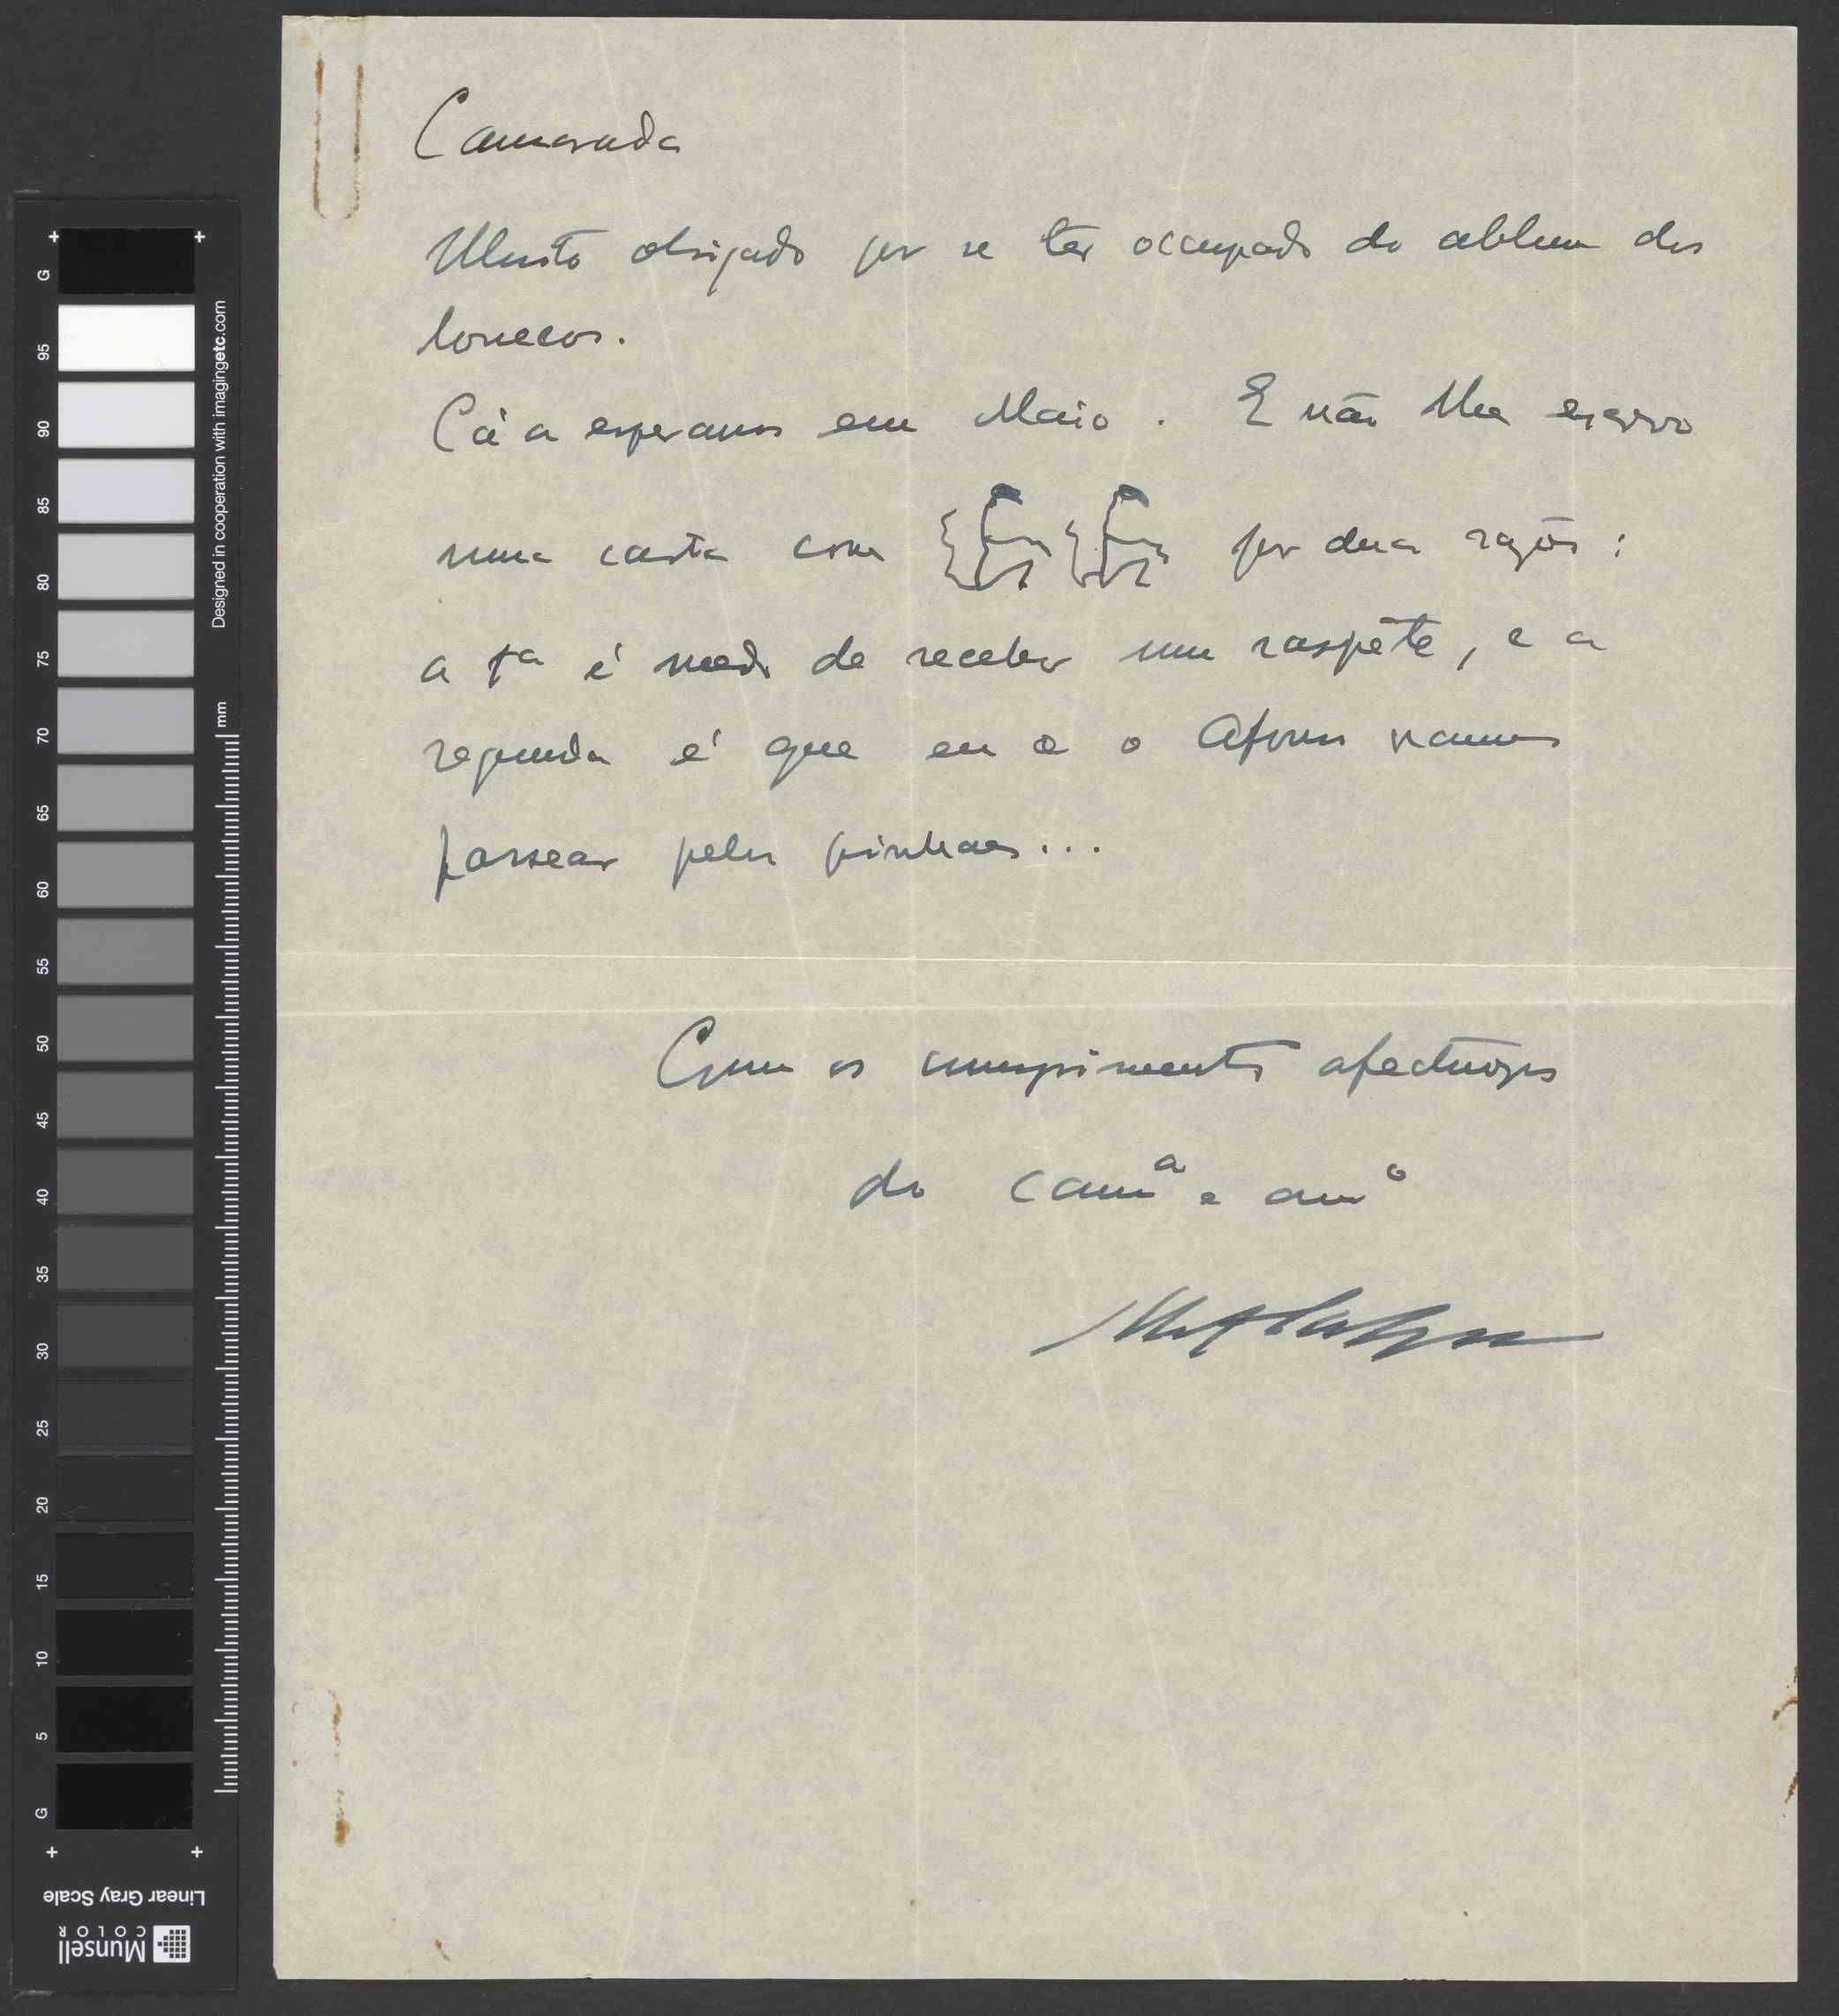 Camarada
Muito obrigado por se ter occupado do alblum dos
bonecos.
Cá a esperamos em Maio. E não lhe escrevo
uma carta com por duas razões:
a 1ª é medo de receber um raspête, e a
segunda é que eu e o Afonso vamos
passear pelos pinhaes...
Com os cumprimentos afectuosos
do camª e amº
G 95 90 85 80 75 70 65 60 55 50 45 40 35 30 25 20 15 10 5 G
Designed in cooperation with imagingetc.com
mm
Linear Gray Scale
Munsell
COLOR